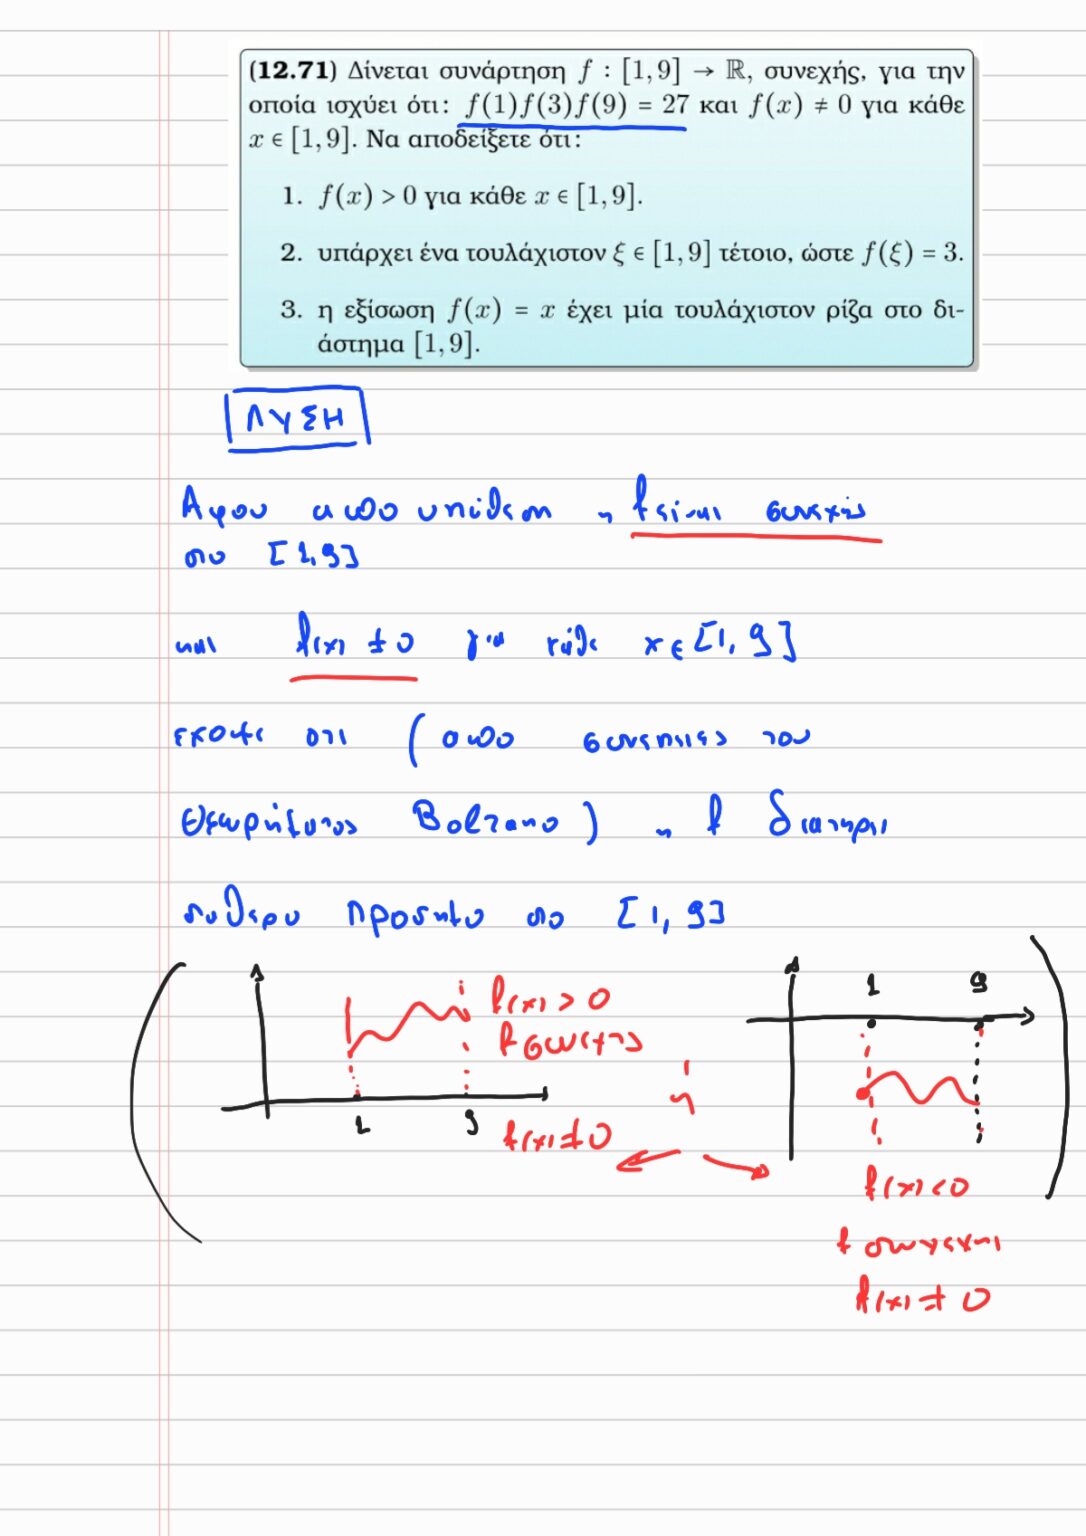 (12.71) Δίνεται συνάρτηση f : [1,9] → ℝ, συνεχής, για την
οποία ισχύει ότι: f(1)f(3)f(9) = 27 και f(x) ≠ 0 για κάθε
x ∈ [1,9]. Να αποδείξετε ότι:
1. f(x) > 0 για κάθε x ∈ [1,9].
2. υπάρχει ένα τουλάχιστον ξ ∈ [1,9] τέτοιο, ώστε f(ξ) = 3.
3. η εξίσωση f(x) = x έχει μία τουλάχιστον ρίζα στο δι-
άστημα [1,9].
ΛΥΣΗ
Αφου απο υπόθεση η f είναι συνεχής
στο [1,9]
και f(x) ≠ 0 για κάθε x ∈ [1,9]
εχουμε οτι (απο συνεπειες του
Θεωρήματος Bolzano) η f διατηρει
σταθερο προσημο στο [1,9]
f(x) > 0
f συνεχης
1 9 f(x) ≠ 0
ή
1 9
f(x) < 0
f συνεχης
f(x) ≠ 0